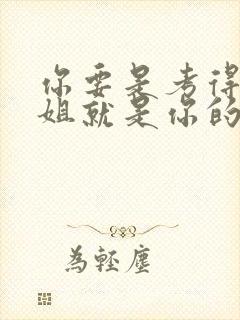 你要是考得
姐就是你的
為輕塵